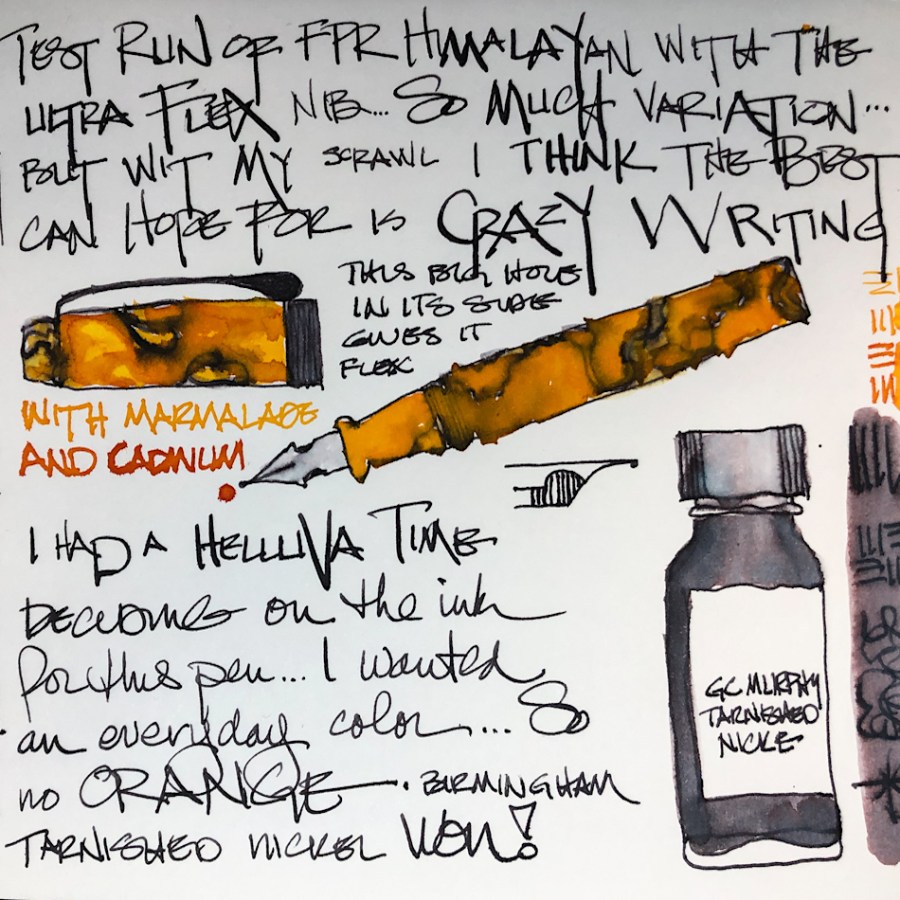 TEST RUN OF FPR HIMALAYAN WITH THE
ULTRA FLEX NIB... SO MUCH VARIATION...
BUT WIT MY SCRAWL I THINK THE BEST
CAN HOPE FOR IS CRAZY WRITING
THIS BIG HOLE
IN ITS SIDE
GIVES IT
FLEX
WITH MARMALADE
AND CADMIUM
I HAD A HELLUVA TIME
DECIDING on the ink
for this pen... I wanted
an everyday color... So
no ORANGE. BIRMINGHAM
TARNISHED NICKEL WON!
GC MURPHY
TARNISHED
NICKLE